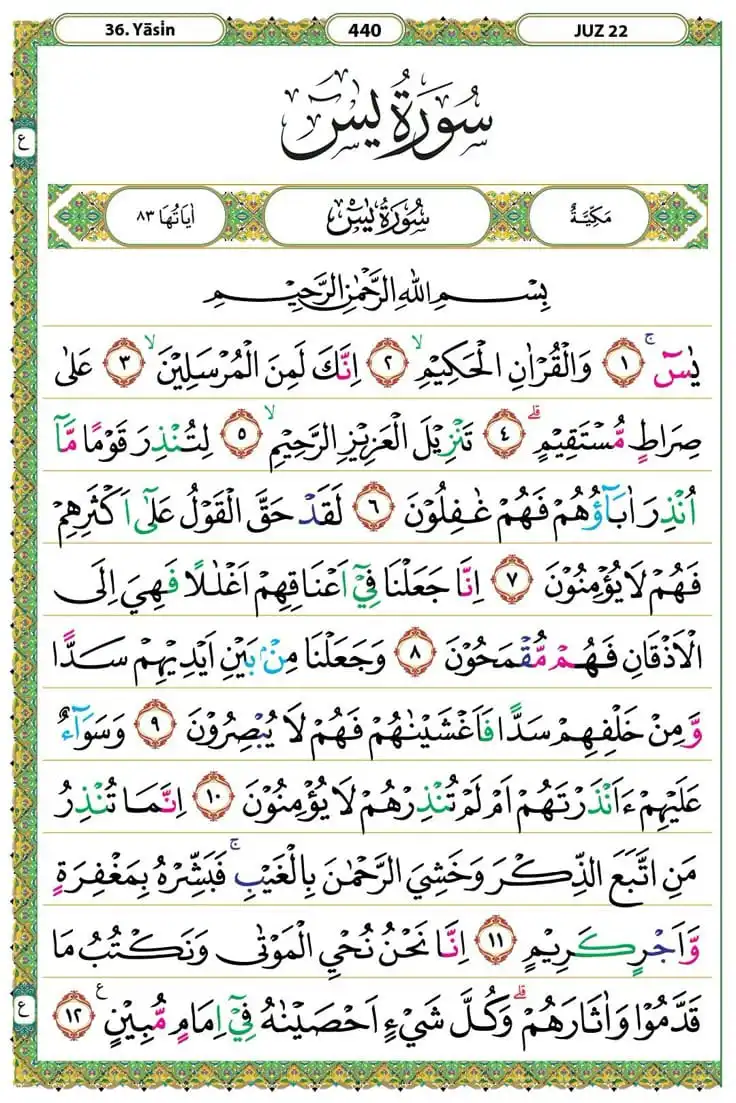 36. Yāsin 440 JUZ 22
ع
سُورَةُ يٰسٓ
اٰيَاتُهَا ٨٣ سُورَةُ يٰسٓ مَكِّيَّةٌ
بِسْمِ اللّٰهِ الرَّحْمٰنِ الرَّحِيْمِ
يٰسٓ ۚ ١ وَالْقُرْاٰنِ الْحَكِيْمِ ۙ ٢ اِنَّكَ لَمِنَ الْمُرْسَلِيْنَ ۙ ٣ عَلٰى
صِرَاطٍ مُّسْتَقِيْمٍ ۗ ٤ تَنْزِيْلَ الْعَزِيْزِ الرَّحِيْمِ ۙ ٥ لِتُنْذِرَ قَوْمًا مَّآ
اُنْذِرَ اٰبَاۤؤُهُمْ فَهُمْ غٰفِلُوْنَ ٦ لَقَدْ حَقَّ الْقَوْلُ عَلٰٓى اَكْثَرِهِمْ
فَهُمْ لَا يُؤْمِنُوْنَ ٧ اِنَّا جَعَلْنَا فِيْٓ اَعْنَاقِهِمْ اَغْلٰلًا فَهِيَ اِلَى
الْاَذْقَانِ فَهُمْ مُّقْمَحُوْنَ ٨ وَجَعَلْنَا مِنْۢ بَيْنِ اَيْدِيْهِمْ سَدًّا
وَّمِنْ خَلْفِهِمْ سَدًّا فَاَغْشَيْنٰهُمْ فَهُمْ لَا يُبْصِرُوْنَ ٩ وَسَوَاۤءٌ
عَلَيْهِمْ ءَاَنْذَرْتَهُمْ اَمْ لَمْ تُنْذِرْهُمْ لَا يُؤْمِنُوْنَ ١٠ اِنَّمَا تُنْذِرُ
مَنِ اتَّبَعَ الذِّكْرَ وَخَشِيَ الرَّحْمٰنَ بِالْغَيْبِ ۚ فَبَشِّرْهُ بِمَغْفِرَةٍ
وَّاَجْرٍ كَرِيْمٍ ١١ اِنَّا نَحْنُ نُحْيِ الْمَوْتٰى وَنَكْتُبُ مَا
قَدَّمُوْا وَاٰثَارَهُمْ ۗ وَكُلَّ شَيْءٍ اَحْصَيْنٰهُ فِيْٓ اِمَامٍ مُّبِيْنٍ ع ١٢
ع